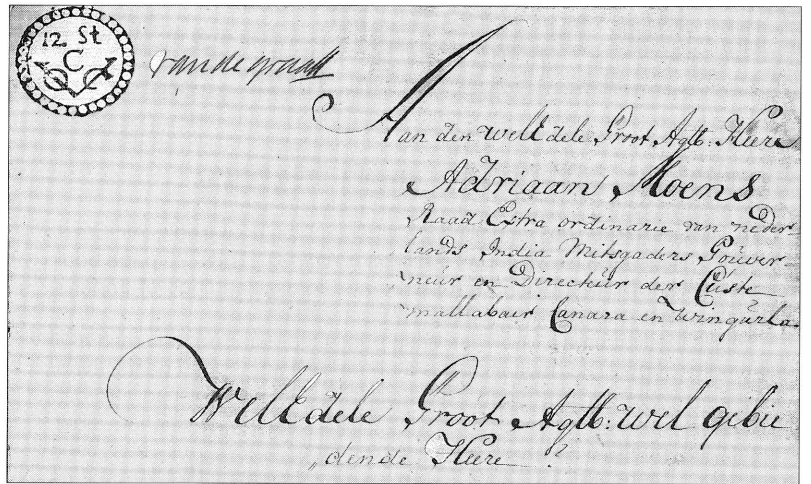 12. St
C
van de graaff
Aan den well Edele Groot Agtb: Heere
Adriaan Moens
Raad Extra ordinarie van neder
lands India Mitsgaders Gouver
neur en Directeur der Cúste
mallabair Canara en Wingurla.
Well Edele Groot Agtb: wel gebie
dende Heere